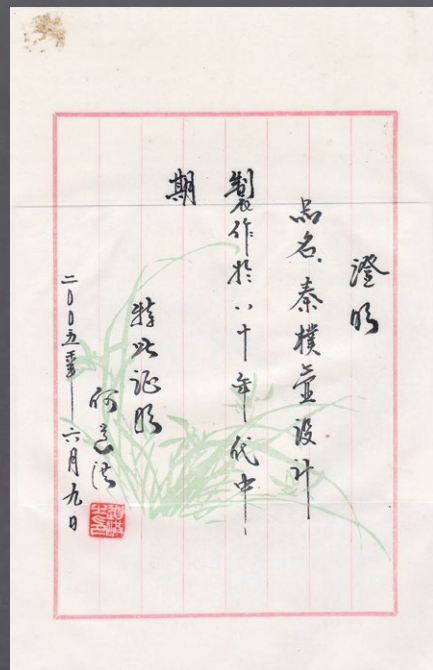 證明
品名、秦樸壺设计
製作於八十年代中
期
特此证明
何道洪
二〇〇五年六月九日